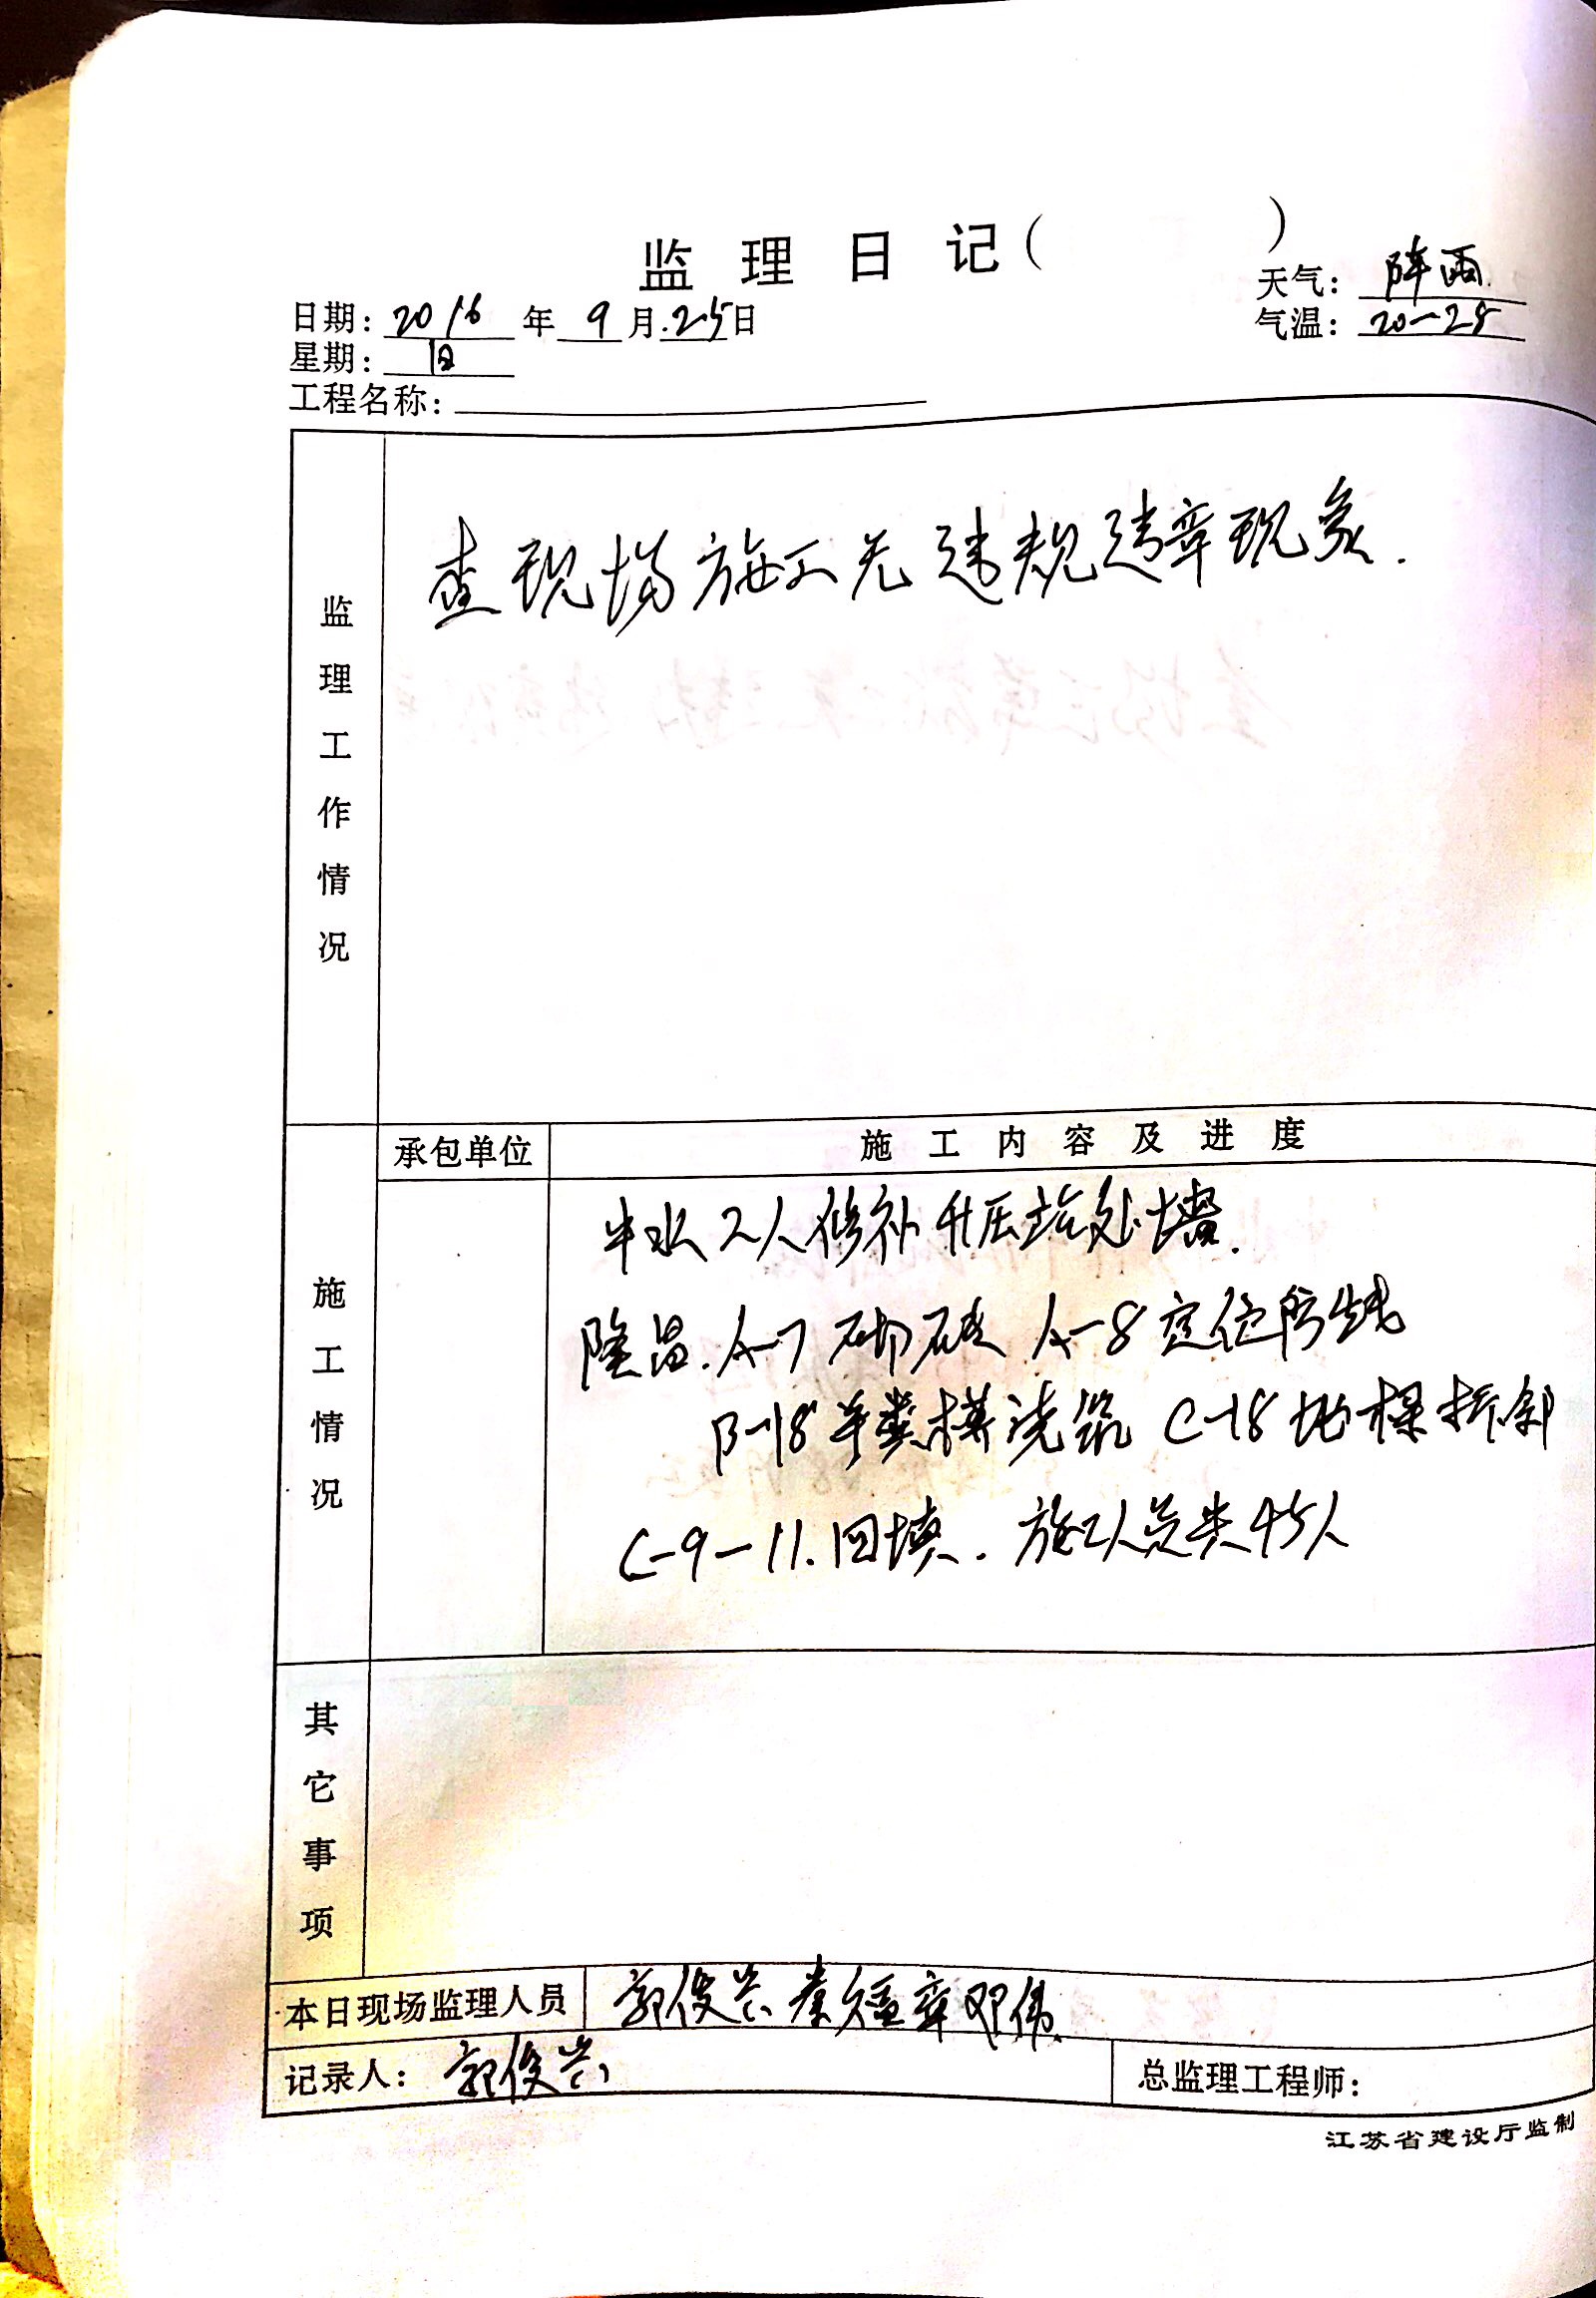 监理日记( )
天气: 阵雨.
日期: 2016 年 9 月.25日
气温: 20-28
星期: 日
工程名称:
监理工作情况
查现场施工无违规违章现象.
承包单位 施工内容及进度
施工情况
中水2人修补升压站处墙.
隆昌.A-7砌砖 A-8定位防线
B-18 浇筑 C-18地梁拆
C-9-11.回填. 施工人员共45人
其它事项
本日现场监理人员 郭俊兴 秦 章 邓伟.
记录人: 郭俊兴 总监理工程师:
江苏省建设厅监制